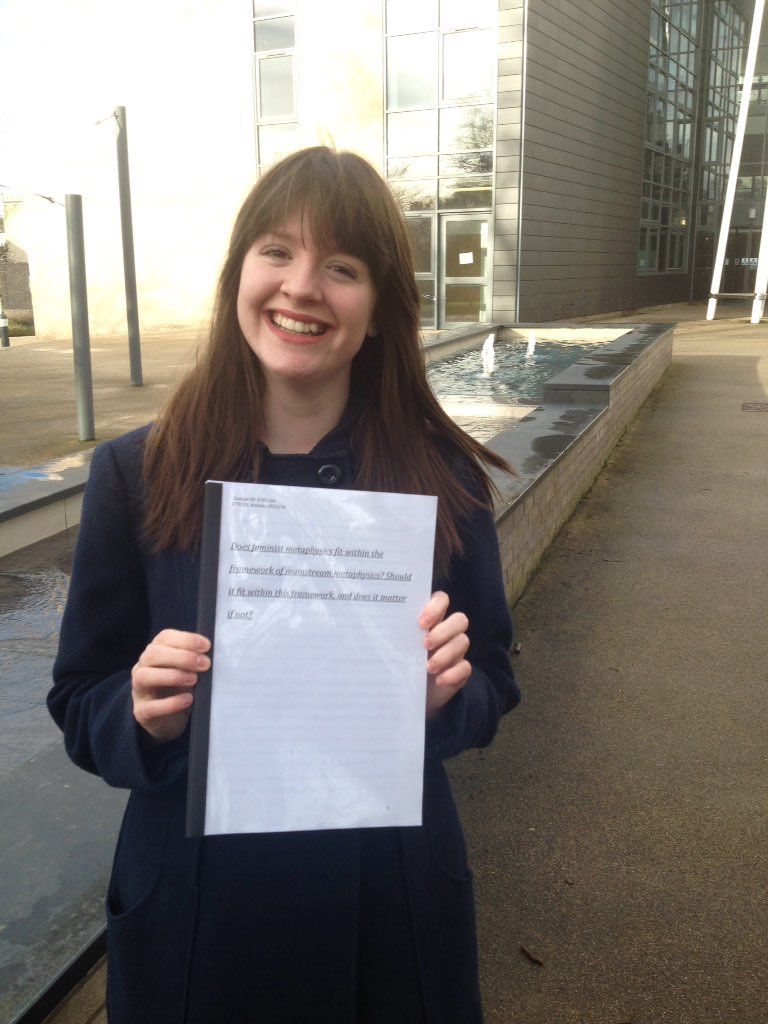 Student ID:
Autumn 2015/16
Does feminist metaphysics fit within the
framework of mainstream metaphysics? Should
it fit within this framework, and does it matter
if not?